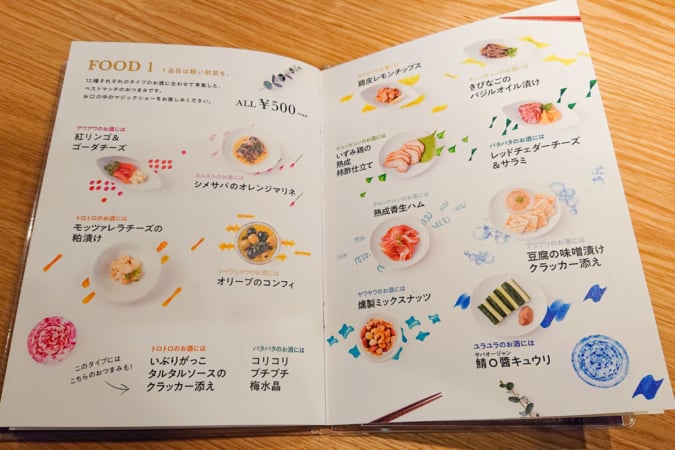 FOOD 1 1品目は軽い前菜を。
12種それぞれのタイプのお酒に合わせて考案した、
ベストマッチのおつまみです。
お口の中のマジックショーをお楽しみください。
ALL ¥500
アワアワのお酒には
紅リンゴ&
ゴーダチーズ
スルスルのお酒には
シメサバのオレンジマリネ
トロトロのお酒には
モッツァレラチーズの
粕漬け
シャラシャラのお酒には
オリーブのコンフィ
このタイプには
こちらのおつまみも!
トロトロのお酒には
いぶりがっこ
タルタルソースの
クラッカー添え
パタパタのお酒には
コリコリ
プチプチ
梅水晶
鶏皮レモンチップス
きびなごの
バジルオイル漬け
ビュンビュンのお酒には
いずみ鶏の
熟成
柿酢仕立て
パタパタのお酒には
レッドチェダーチーズ
&サラミ
クルンクルンのお酒には
熟成香生ハム
プリプリのお酒には
豆腐の味噌漬け
クラッカー添え
ヤワヤワのお酒には
燻製ミックスナッツ
ユラユラのお酒には
サバオージャン
鯖O醬キュウリ